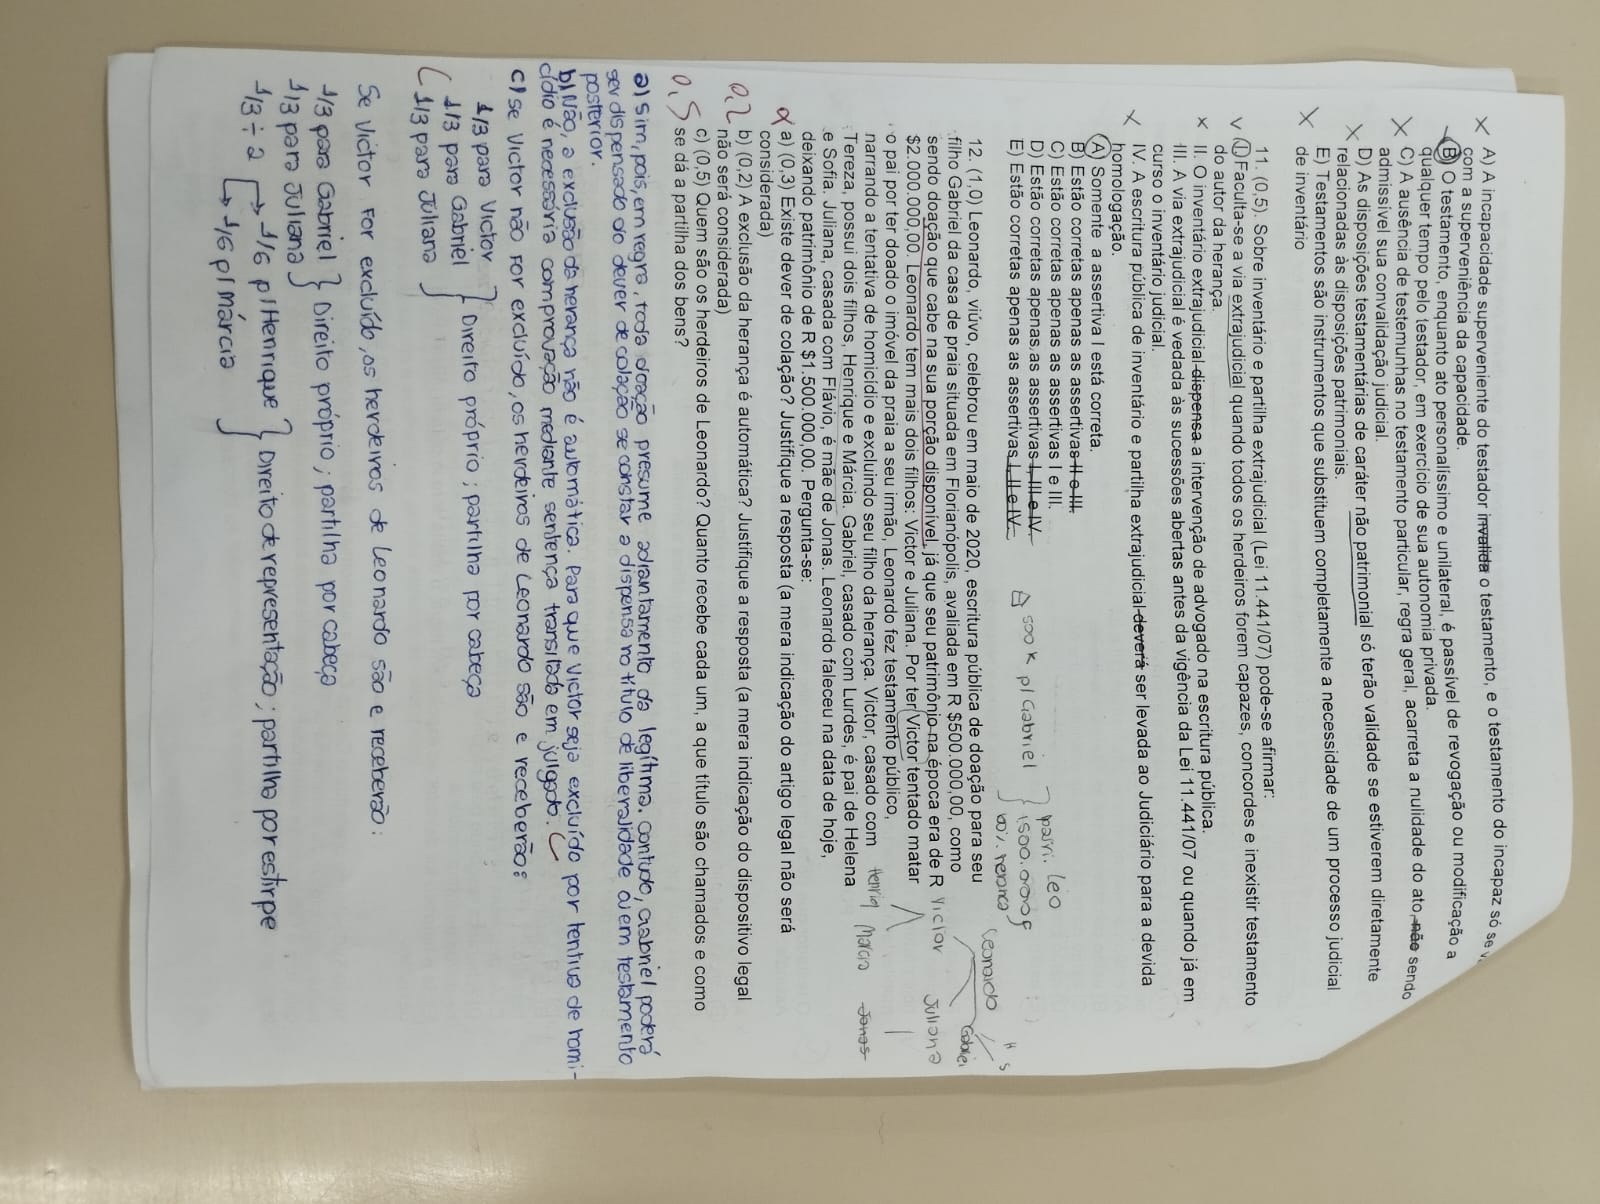 X A) A incapacidade superveniente do testador invalida o testamento, e o testamento do incapaz só se v
com a superveniência da capacidade.
B) O testamento, enquanto ato personalíssimo e unilateral, é passível de revogação ou modificação a
qualquer tempo pelo testador, em exercício de sua autonomia privada.
X C) A ausência de testemunhas no testamento particular, regra geral, acarreta a nulidade do ato, não sendo
admissível sua convalidação judicial.
X D) As disposições testamentárias de caráter não patrimonial só terão validade se estiverem diretamente
relacionadas às disposições patrimoniais.
X E) Testamentos são instrumentos que substituem completamente a necessidade de um processo judicial
de inventário
11. (0,5). Sobre inventário e partilha extrajudicial (Lei 11.441/07) pode-se afirmar:
V I. Faculta-se a via extrajudicial quando todos os herdeiros forem capazes, concordes e inexistir testamento
do autor da herança.
x II. O inventário extrajudicial dispensa a intervenção de advogado na escritura pública.
III. A via extrajudicial é vedada às sucessões abertas antes da vigência da Lei 11.441/07 ou quando já em
curso o inventário judicial.
X IV. A escritura pública de inventário e partilha extrajudicial deverá ser levada ao Judiciário para a devida
homologação.
A) Somente a assertiva I está correta.
B) Estão corretas apenas as assertivas II e III.
C) Estão corretas apenas as assertivas I e III.
D) Estão corretas apenas as assertivas I, III e IV.
E) Estão corretas apenas as assertivas I, II e IV.
500 K p/ Gabriel
patri. Leo
1500.000,00
Leonardo
Victor Juliana Gabriel
H S
Henriq Marcia Jonas
12. (1,0) Leonardo, viúvo, celebrou em maio de 2020, escritura pública de doação para seu
filho Gabriel da casa de praia situada em Florianópolis, avaliada em R $500.000,00, como
sendo doação que cabe na sua porção disponível, já que seu patrimônio na época era de R
$2.000.000,00. Leonardo tem mais dois filhos: Victor e Juliana. Por ter Victor tentado matar
o pai por ter doado o imóvel da praia a seu irmão, Leonardo fez testamento público,
narrando a tentativa de homicídio e excluindo seu filho da herança. Victor, casado com
Tereza, possui dois filhos, Henrique e Márcia. Gabriel, casado com Lurdes, é pai de Helena
e Sofia. Juliana, casada com Flávio, é mãe de Jonas. Leonardo faleceu na data de hoje,
deixando patrimônio de R $1.500.000,00. Pergunta-se:
a) (0,3) Existe dever de colação? Justifique a resposta (a mera indicação do artigo legal não será
considerada)
0,2 b) (0,2) A exclusão da herança é automática? Justifique a resposta (a mera indicação do dispositivo legal
não será considerada)
0,5 c) (0,5) Quem são os herdeiros de Leonardo? Quanto recebe cada um, a que título são chamados e como
se dá a partilha dos bens?
a) Sim, pois, em regra, toda doação presume adiantamento da legítima. Contudo, Gabriel poderá
ser dispensado do dever de colação se constar a dispensa no título de liberalidade ou em testamento
posterior.
b) Não, a exclusão da herança não é automática. Para que Victor seja excluído por tentiva de homi-
cídio é necessária comprovação mediante sentença transitada em julgado.
c) Se Victor não for excluído, os herdeiros de Leonardo são e receberão:
1/3 para Victor
1/3 para Gabriel } Direito próprio; partilha por cabeça
1/3 para Juliana
Se Victor for excluído, os herdeiros de Leonardo são e receberão:
1/3 para Gabriel } Direito próprio; partilha por cabeça
1/3 para Juliana
1/3 ÷ 2 → 1/6 p/ Henrique } Direito de representação; partilha por estirpe
→ 1/6 p/ márcia